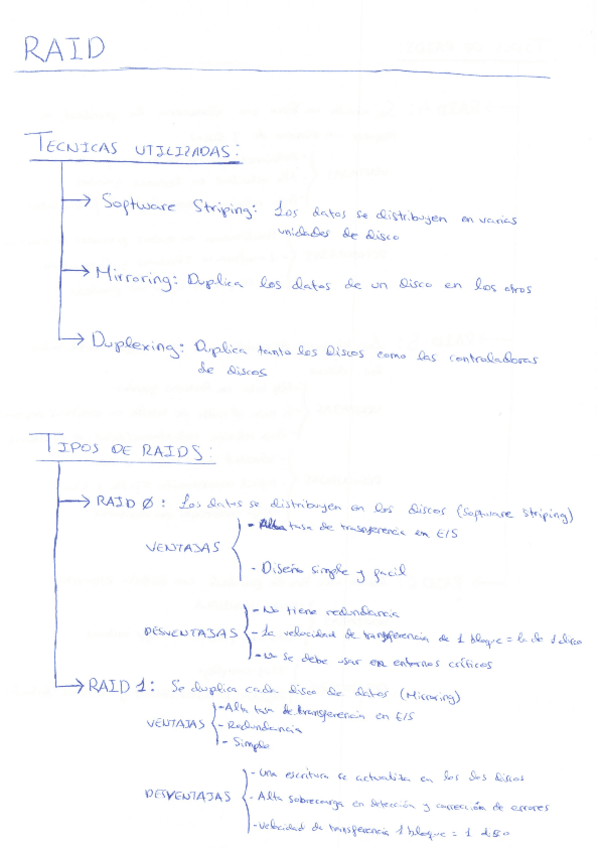 RAID
TECNICAS UTILIZADAS:
Software Striping: Los datos se distribuyen en varias
unidades de disco
Mirroring: Duplica los datos de un disco en los otros
Duplexing: Duplica tanto los discos como las controladoras
de discos
TIPOS DE RAIDS:
RAID 0: Los datos se distribuyen en los discos (Software Striping)
- Alta tasa de transferencia en E/S
VENTAJAS
- Diseño simple y facil
- No tiene redundancia
DESVENTAJAS - La velocidad de transferencia de 1 bloque = la de 1 disco
- No se debe usar en entornos críticos
RAID 1: Se duplica cada disco de datos (Mirroring)
- Alta tasa de transferencia en E/S
VENTAJAS - Redundancia
- Simple
- Una escritura se actualiza en los dos discos
DESVENTAJAS - Alta sobrecarga en detección y corrección de errores
- velocidad de transferencia 1 bloque = 1